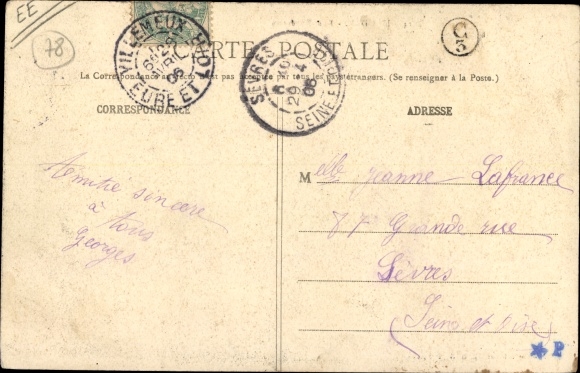 EE
78
VILLEMEUX
EURE ET
CARTE POSTALE
G
3
SEVRES
29 4
06
SEINE ET
La Correspondance au recto n'est pas acceptée par tous les pays étrangers. (Se renseigner à la Poste.)
CORRESPONDANCE
ADRESSE
Amitié sincere
à tous
Georges
Melle Jeanne Lafrance
Grande rue
Sèvres
(Seine et Oise)
P